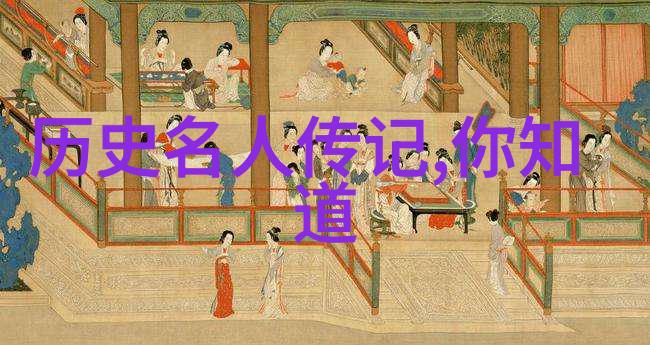 历史名人传记,你知
道